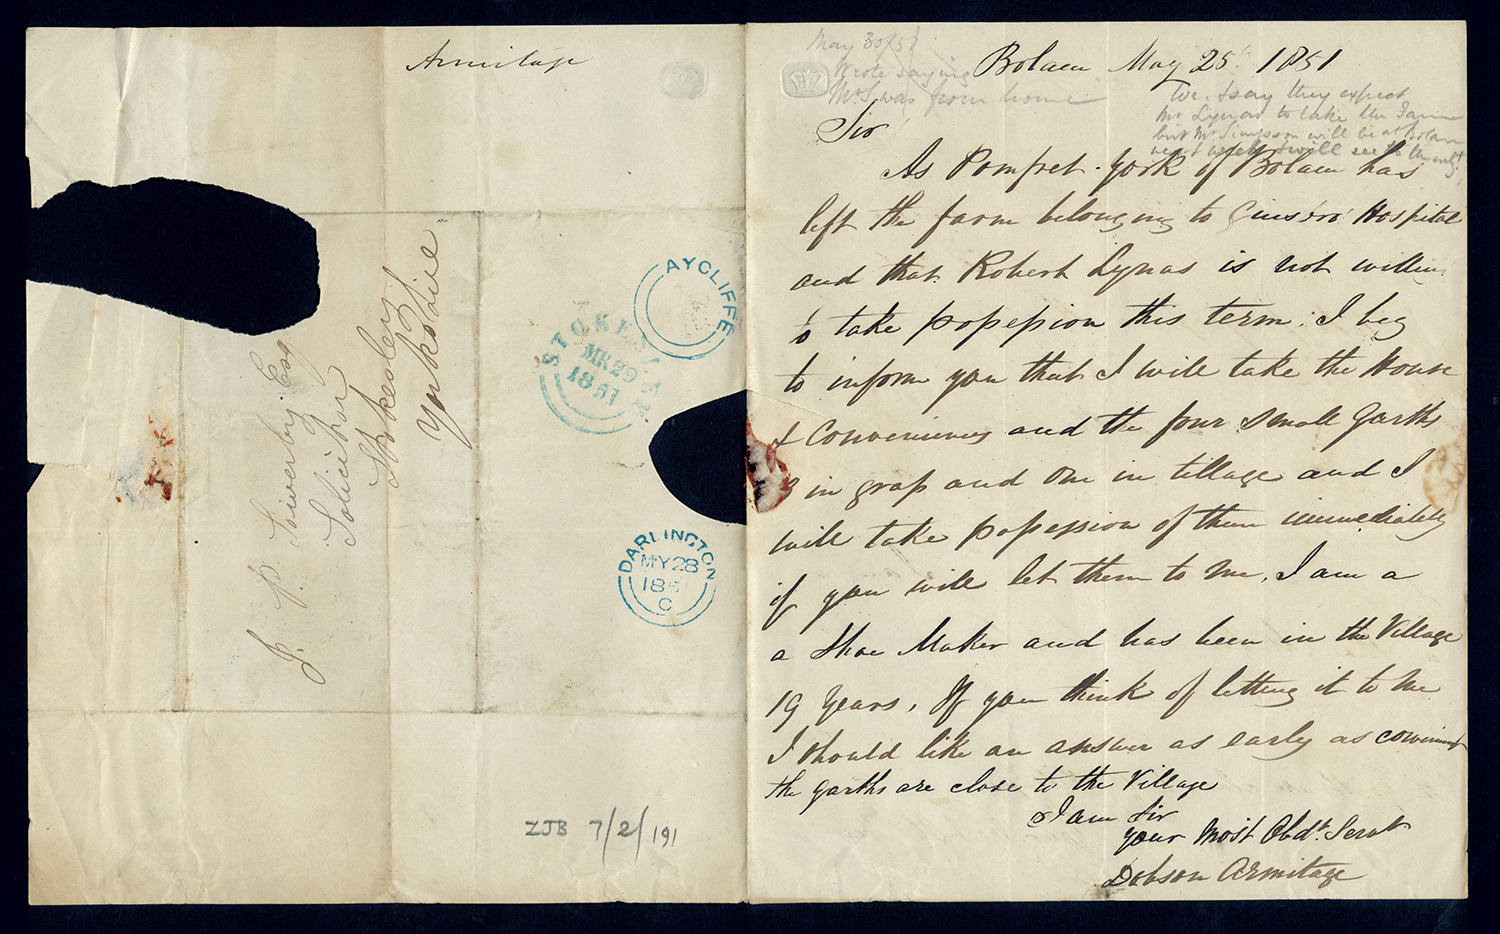 Armitage
J. P. Sowerby Esq
Solicitor
Stokesley
Yorkshire
AYCLIFFE
STOKESLEY
MR 29
1851
DARLINGTON
MY 28
185
C
ZJB 7/2/191
May 30/51
Wrote saying
Mr S. was from home
Bolam May 25th 1851
We. Say they expect
Mr Lynas to take the Farm
but Mr Simpson will be at Bolam
next week & will see to the
Sir
As Pomfret York of Bolam has
left the farm belonging to Hospital
and that Robert Lynas is not willing
to take possession this term; I beg
to inform you that I will take the House
& Conveniences and the four Small Garths
3 in grass and One in tillage and I
will take possession of them immediately
if you will let them to me. I am a
a Shoe Maker and has been in the Village
19 Years. If you think of letting it to me
I should like an answer as early as convenient
the garths are close to the Village
I am Sir
your Most Obdt. Servt
Dobson Armitage